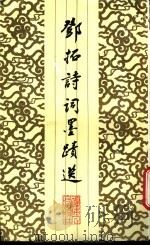 鄧拓詩詞墨蹟選